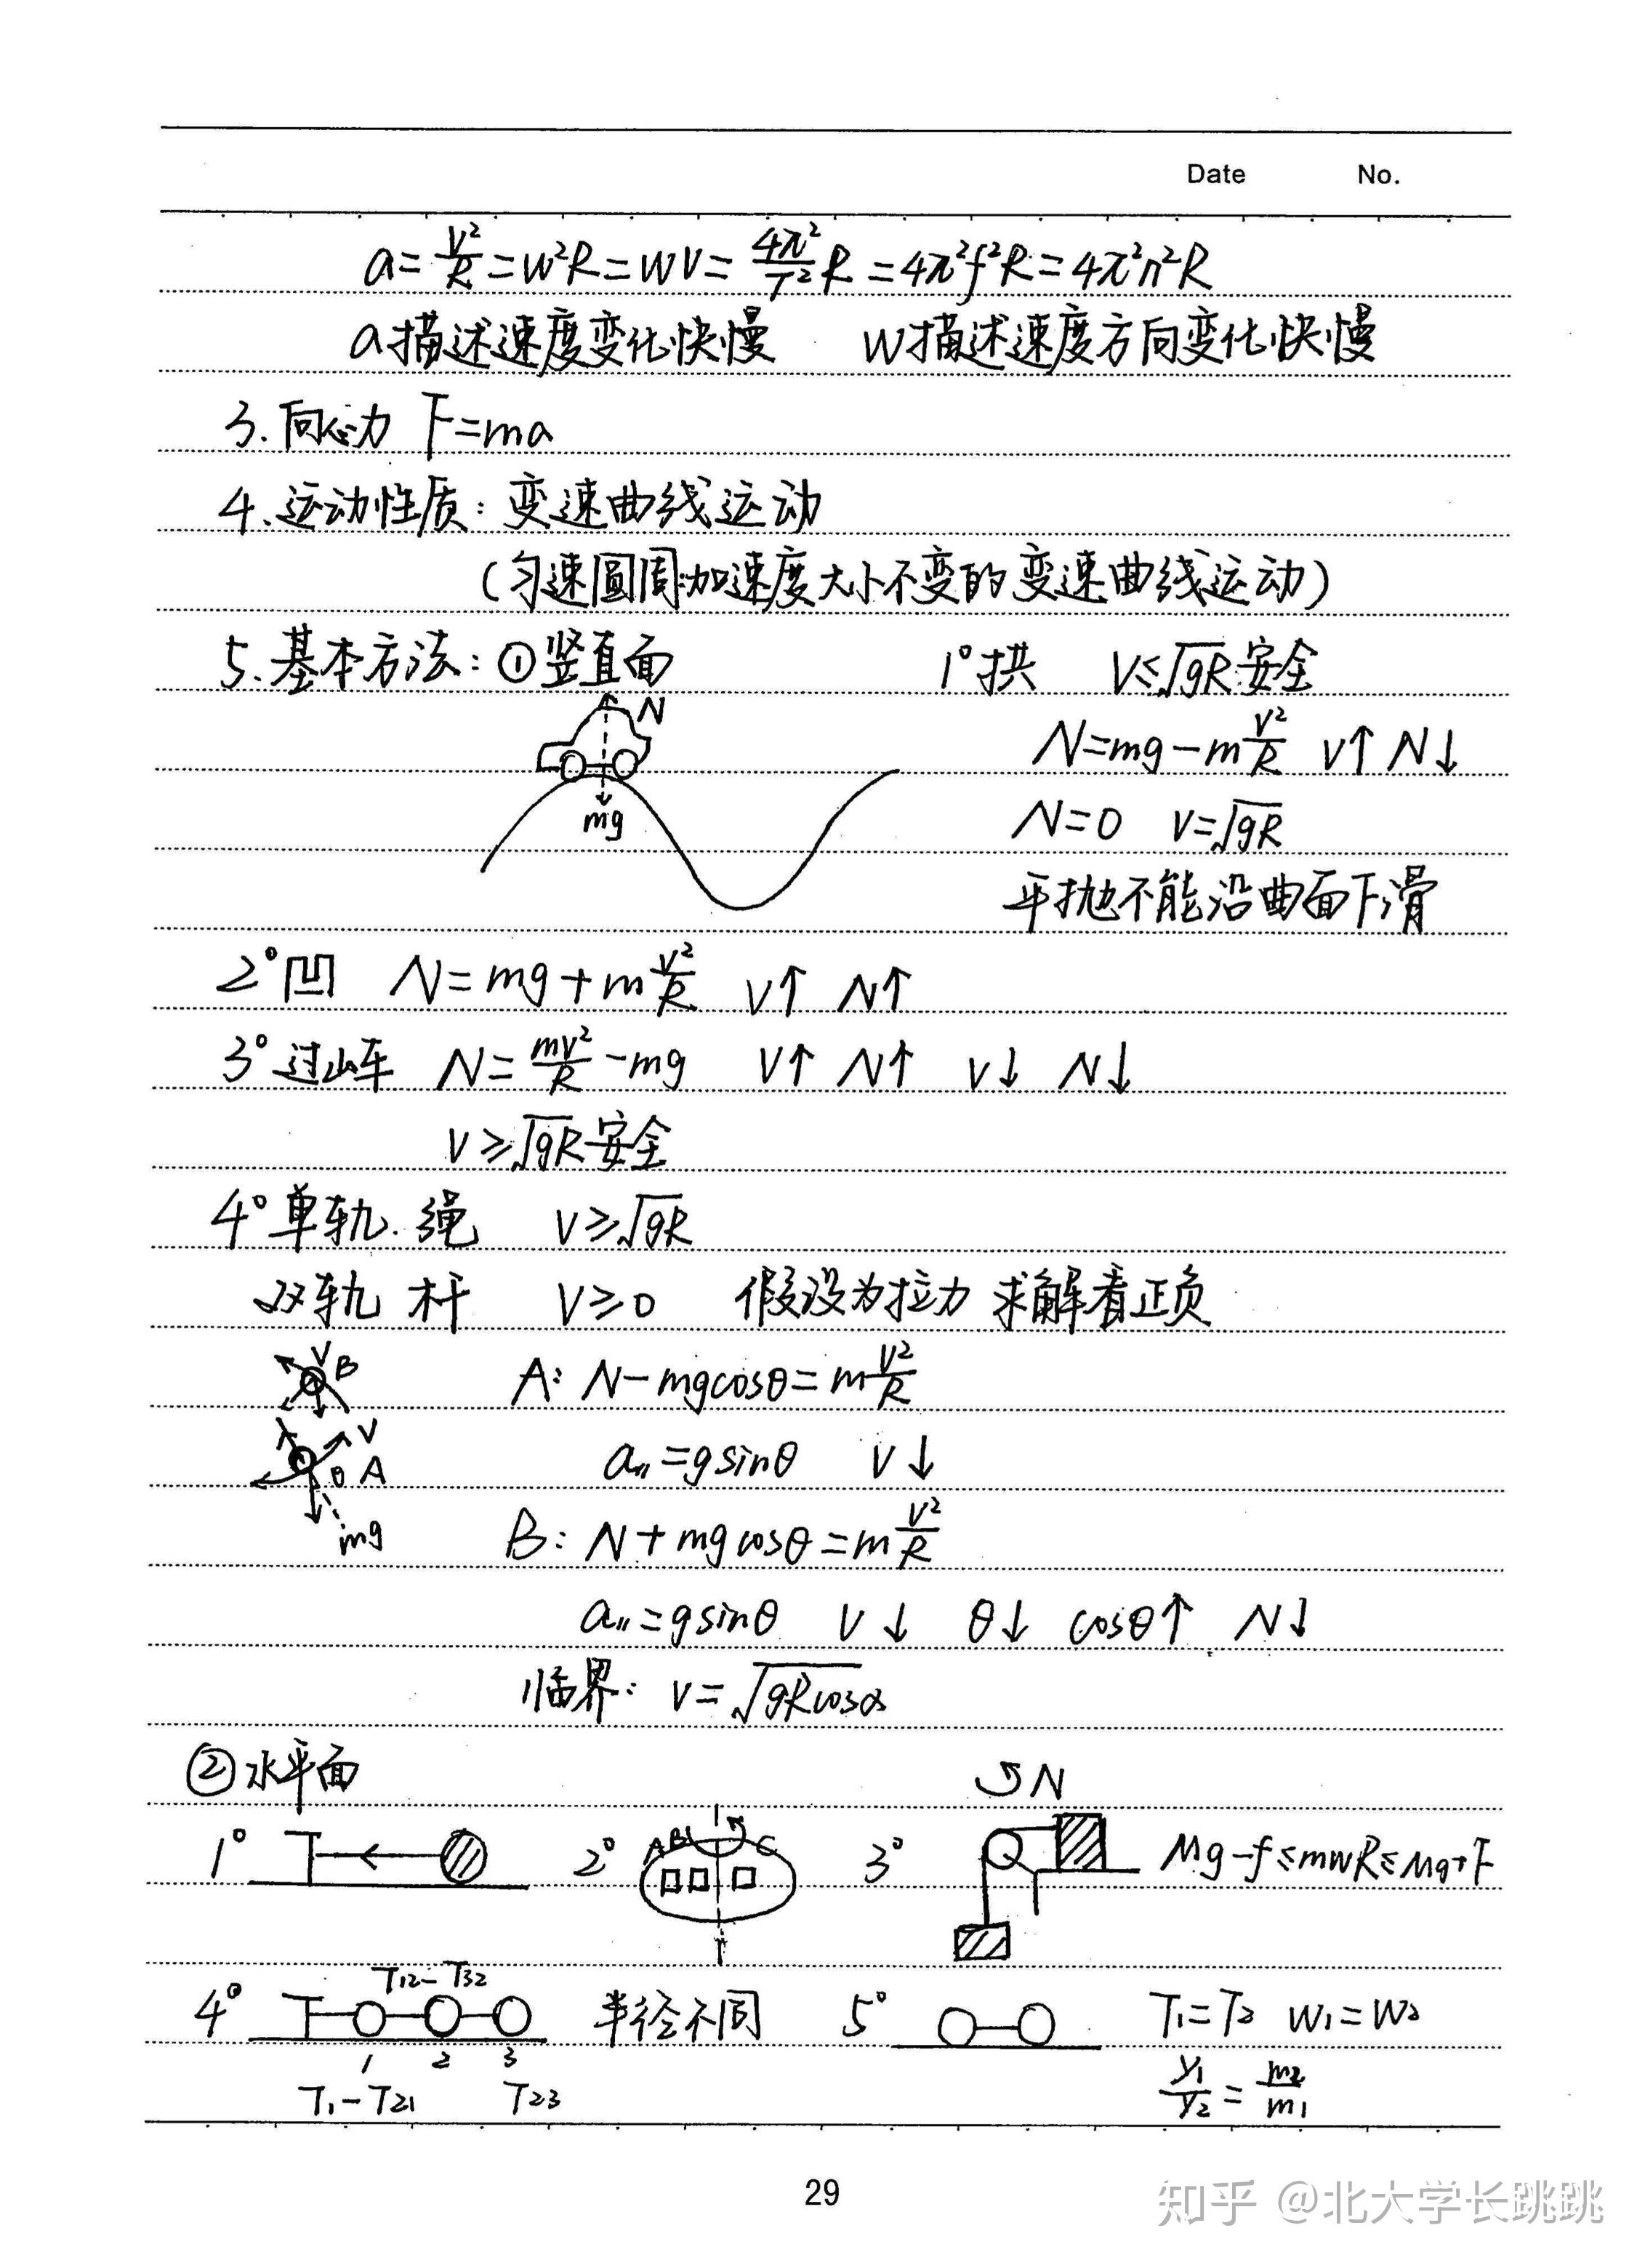 Date No.
a=v²/R=w²R=wv=4π²/T²R=4π²f²R=4π²n²R
a描述速度变化快慢 w描述速度方向变化快慢
3.向心力 F=ma
4.运动性质:变速曲线运动
(匀速圆周:加速度大小不变的变速曲线运动)
5.基本方法:①竖直面 1°拱 V≤√gR安全
N
N=mg-mv²/R v↑ N↓
mg
N=0 v=√gR
平抛不能沿曲面下滑
2°凹 N=mg+mv²/R v↑ N↑
3°过山车 N=mv²/R-mg v↑ N↑ v↓ N↓
v≥√gR安全
4°单轨.绳 v≥√gR
双轨 杆 v≥0 假设为拉力 求解看正负
V B
A: N-mgcosθ=mv²/R
V
θ A
a∥=gsinθ v↓
mg
B: N+mgcosθ=mv²/R
a∥=gsinθ v↓ θ↓ cosθ↑ N↓
临界: v=√gRcosα
②水平面
N
1° 2° A B C 3° Mg-f≤mwR≤Mg+F
T12-T32
4° 半径不同 5° T1=T2 w1=w2
1 2 3
T1-T21 T23
r1/r2=m2/m1
29
知乎 @北大学长跳跳